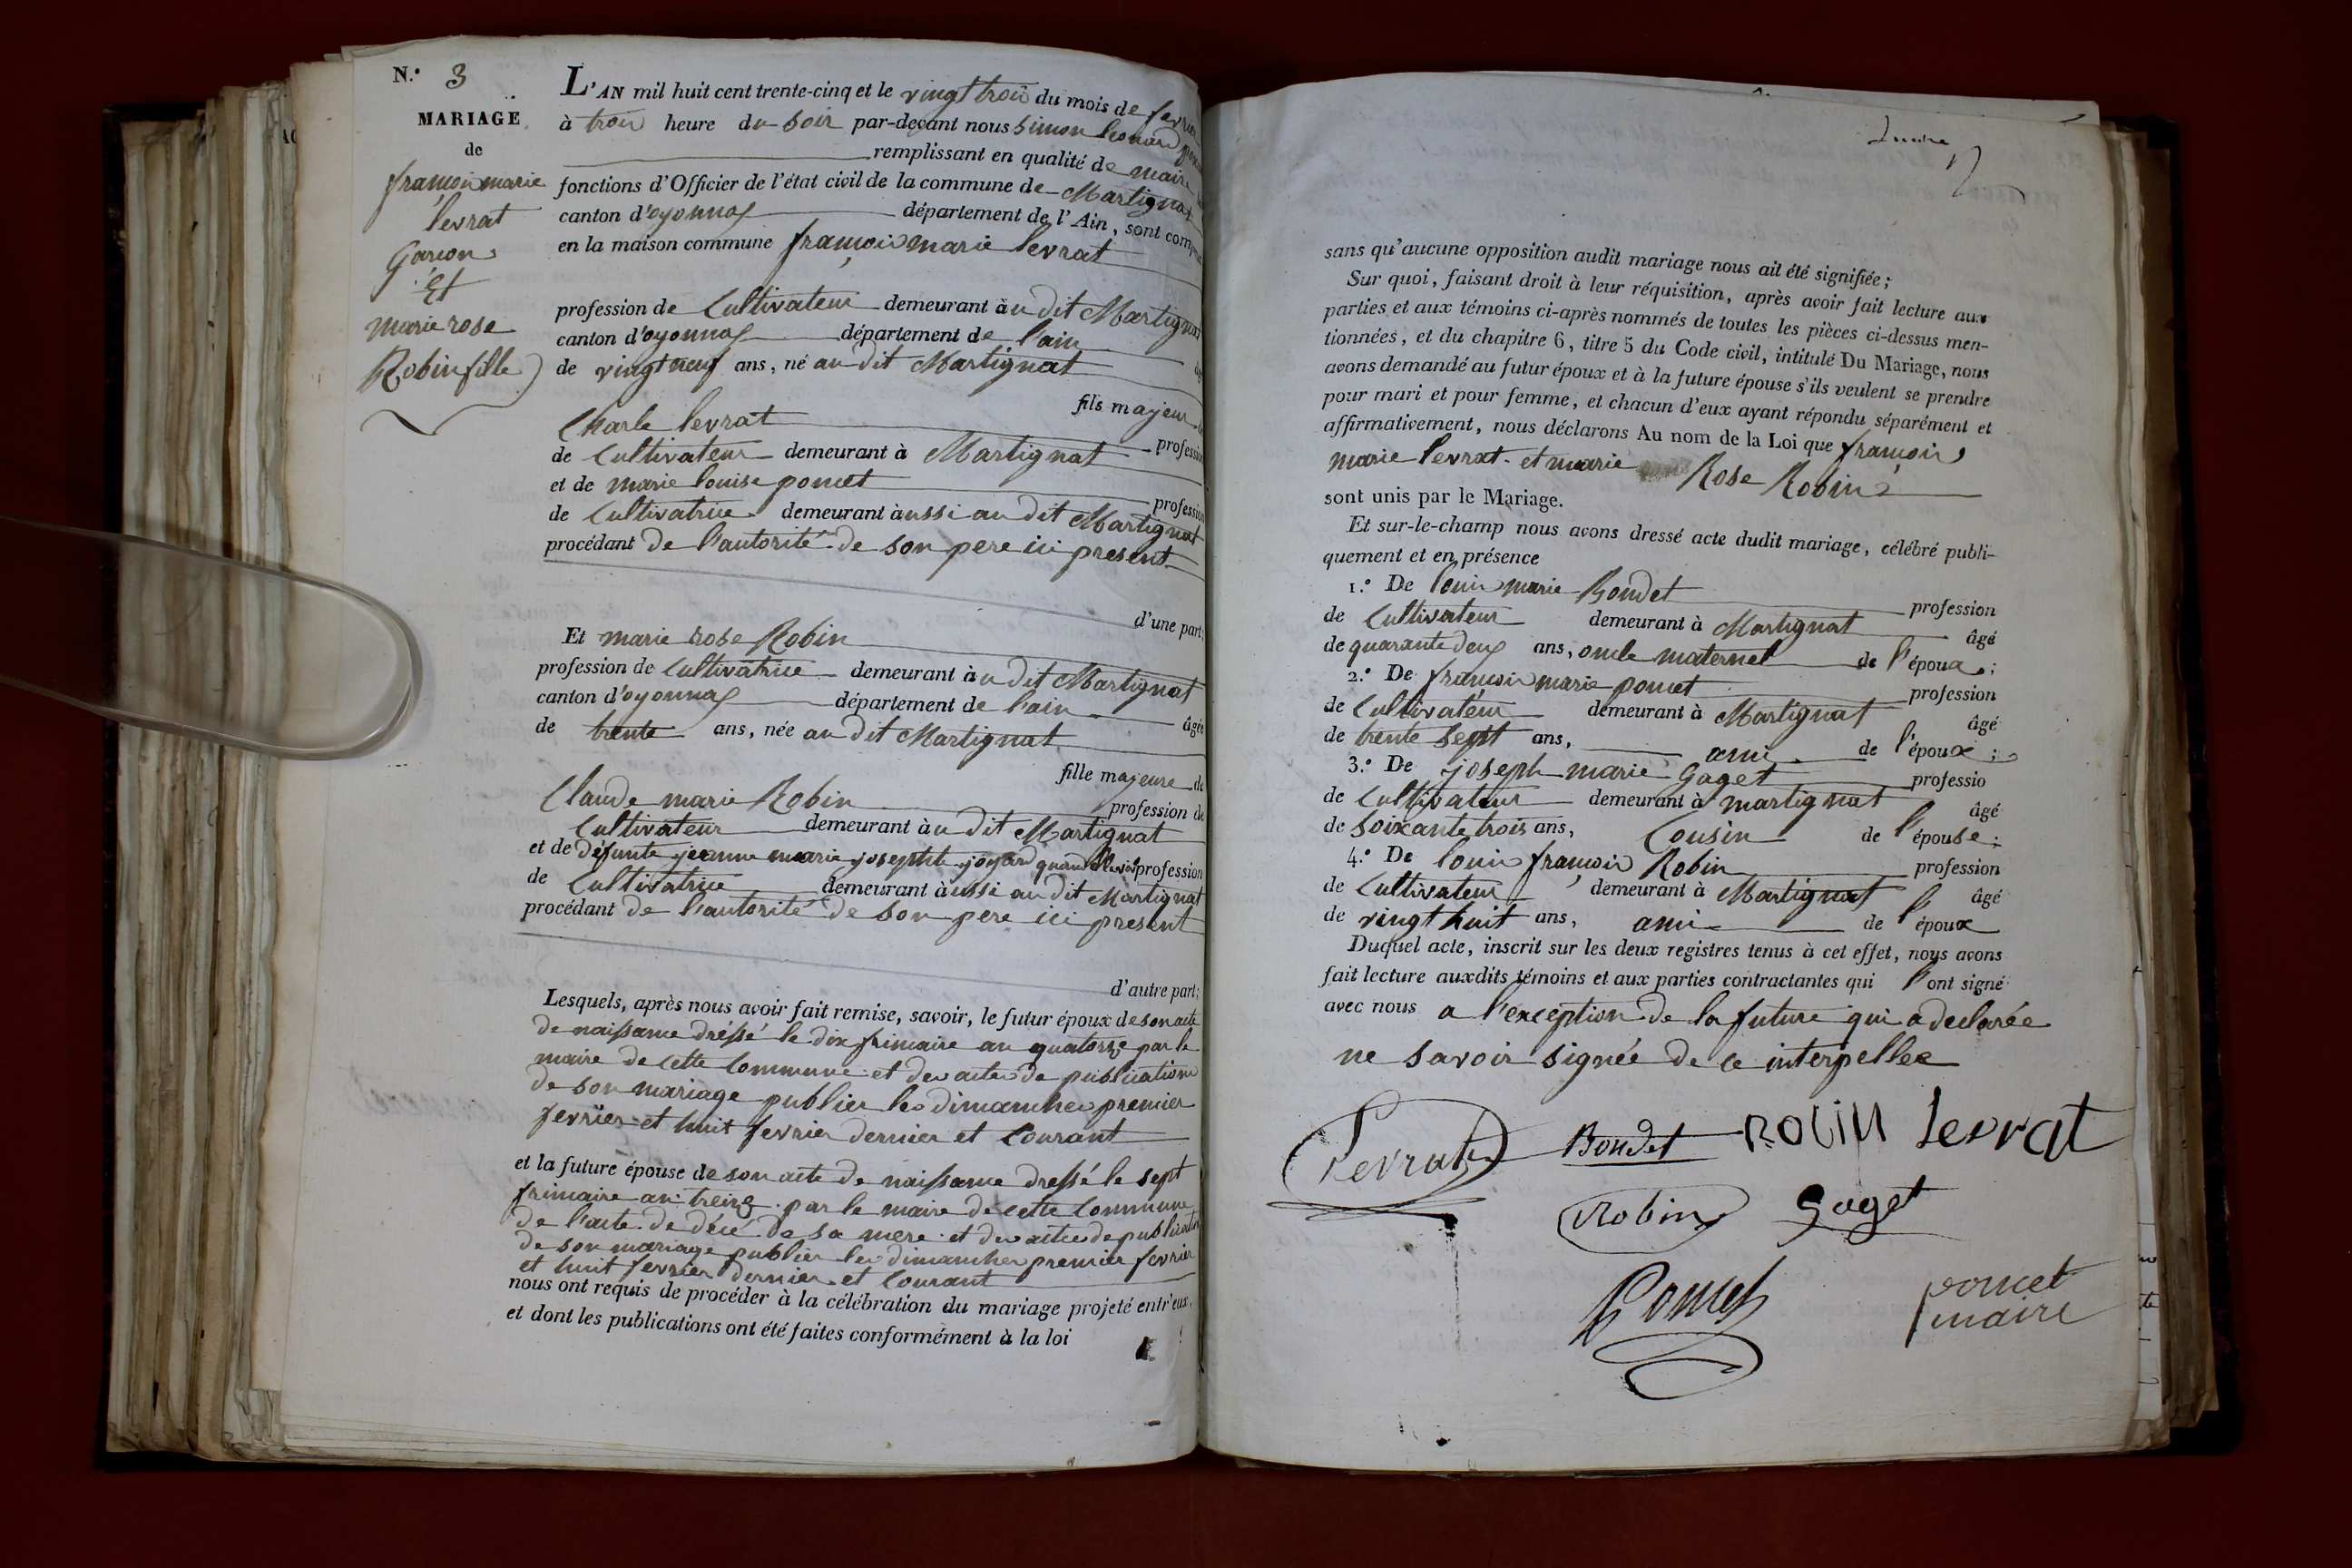 N.° 3
MARIAGE
de
françois marie
levrat
Garson
et
marie rose
Robin fille
L'AN mil huit cent trente-cinq et le vingt trois du mois de fevrier
à trois heure du soir par-devant nous Simon leonard
remplissant en qualité de maire
fonctions d'Officier de l'état civil de la commune de Martignat
canton d'oyonnax département de l'Ain, sont comparus
en la maison commune françois marie levrat
profession de Cultivateur demeurant au dit Martignat
canton d'oyonnax département de l'ain
de vingt neuf ans, né au dit Martignat
fils majeur
Charle levrat
profession
de Cultivateur demeurant à Martignat
et de marie louise poncet
profession
de Cultivatrice demeurant aussi au dit Martignat
procédant de l'autorité de son pere ici present
d'une part;
Et marie rose Robin
profession de Cultivatrice demeurant au dit Martignat
canton d'oyonnax département de l'ain
âgée
de trente ans, née au dit Martignat
fille majeure de
Claude marie Robin
profession de
Cultivateur demeurant au dit Martignat
et de défunte jeanne marie josephte joyard quand vivoit profession
de Cultivatrice demeurant aussi au dit Martignat
procédant de l'autorité de son pere ici present
d'autre part;
Lesquels, après nous avoir fait remise, savoir, le futur époux de son acte
de naissance dréssé le dix frimaire an quatorze par le
maire de cette Commune et des actes de publications
de son mariage publier les dimanches premier
fevrier et huit fevrier dernier et Courant
et la future épouse de son acte de naissance dressé le sept
frimaire an treize par le maire de cette Commune
de l'acte de décé de sa mere et des actes de publication
de son mariage publier les dimanches premier fevrier
et huit fevrier dernier et Courant
nous ont requis de procéder à la célébration du mariage projeté entr'eux,
et dont les publications ont été faites conformément à la loi
sans qu'aucune opposition audit mariage nous ait été signifiée;
Sur quoi, faisant droit à leur réquisition, après avoir fait lecture aux
parties et aux témoins ci-après nommés de toutes les pièces ci-dessus men-
tionnées, et du chapitre 6, titre 5 du Code civil, intitulé Du Mariage, nous
avons demandé au futur époux et à la future épouse s'ils veulent se prendre
pour mari et pour femme, et chacun d'eux ayant répondu séparément et
affirmativement, nous déclarons Au nom de la Loi que françois
marie levrat et marie Rose Robin
sont unis par le Mariage.
Et sur-le-champ nous avons dressé acte dudit mariage, célébré publi-
quement et en présence
1.° De louis marie Bondet profession
de Cultivateur demeurant à Martignat âgé
de quarante deux ans, oncle maternel de l'époux;
2.° De françois marie poncet profession
de Cultivateur demeurant à Martignat âgé
de trente Sept ans, ami de l'époux;
3.° De joseph marie Gaget professio
de Cultivateur demeurant à martignat âgé
de soixante trois ans, Cousin de l'épouse;
4.° De louis françois Robin profession
de Cultivateur demeurant à Martignat âgé
de vingt huit ans, ami de l'époux
Duquel acte, inscrit sur les deux registres tenus à cet effet, nous avons
fait lecture auxdits témoins et aux parties contractantes qui l'ont signé
avec nous a l'exception de la future qui a declarée
ne savoir signée de ce interpellee
Levrat Bondet RObiN levrat
Robin Gaget
Poncet poncet
maire